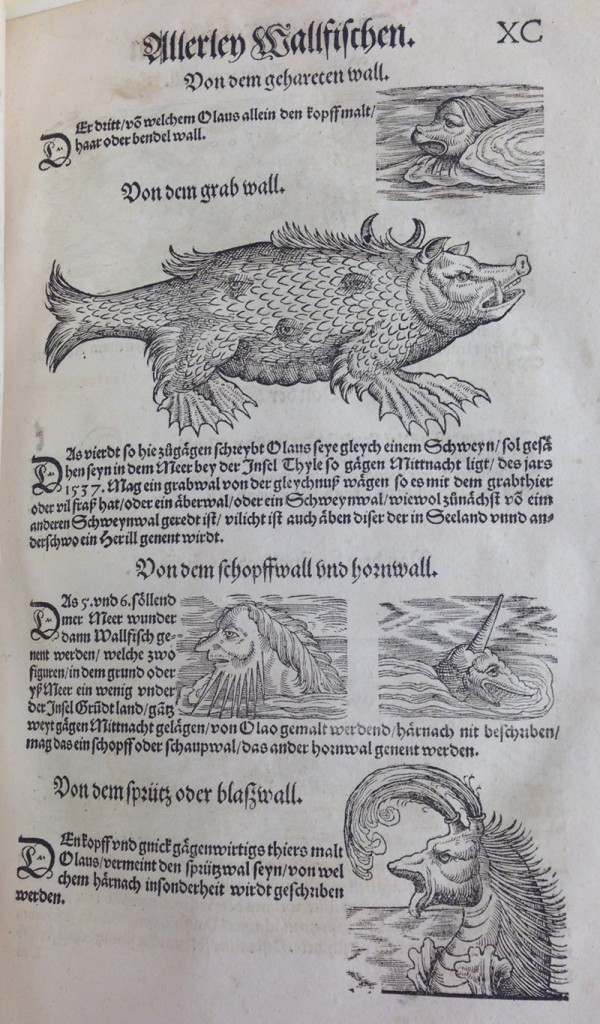 Allerley Wallfischen.
XC
Von dem gehareten wall.
DEr dritt/võ welchem Olaus allein den kopff malt/
haar oder bendel wall.
Von dem grab wall.
DAs vierdt so hie zůgågen schreybt Olaus seye gleych einem Schweyn/ sol geså
hen seyn in dem Meer bey der Insel Thyle so gågen Mittnacht ligt/ des jars
1537. Mag ein grabwal von der gleychnuß wågen so es mit dem grabthier
oder vilfraß hat/oder ein åberwal/oder ein Schweynwal/wiewol zůnåchst võ eim
anderen Schweynwal geredt ist/ vilicht ist auch åben diser der in Seeland vnnd an-
derschwo ein Herill genent wirdt.
Von dem schopffwall vnd hornwall.
DAs 5. vnd 6. sőllend
mer Meer wunder
dann Wallfisch ge-
nent werden/ welche zwo
figuren/in dem grund oder
yß Meer ein wenig vnder
der Insel Grůdtland/gåtz
weyt gågen Mittnacht gelågen/von Olao gemalt werdend/hårnach nit beschriben/
mag das ein schopff oder schaupwal/das ander hornwal genent werden.
Von dem sprütz oder blaßwall.
DEn kopff vnd gnick gågenwirtigs thiers malt
Olaus/vermeint den sprützwal seyn/von wel
chem hårnach insonderheit wirdt geschriben
werden.